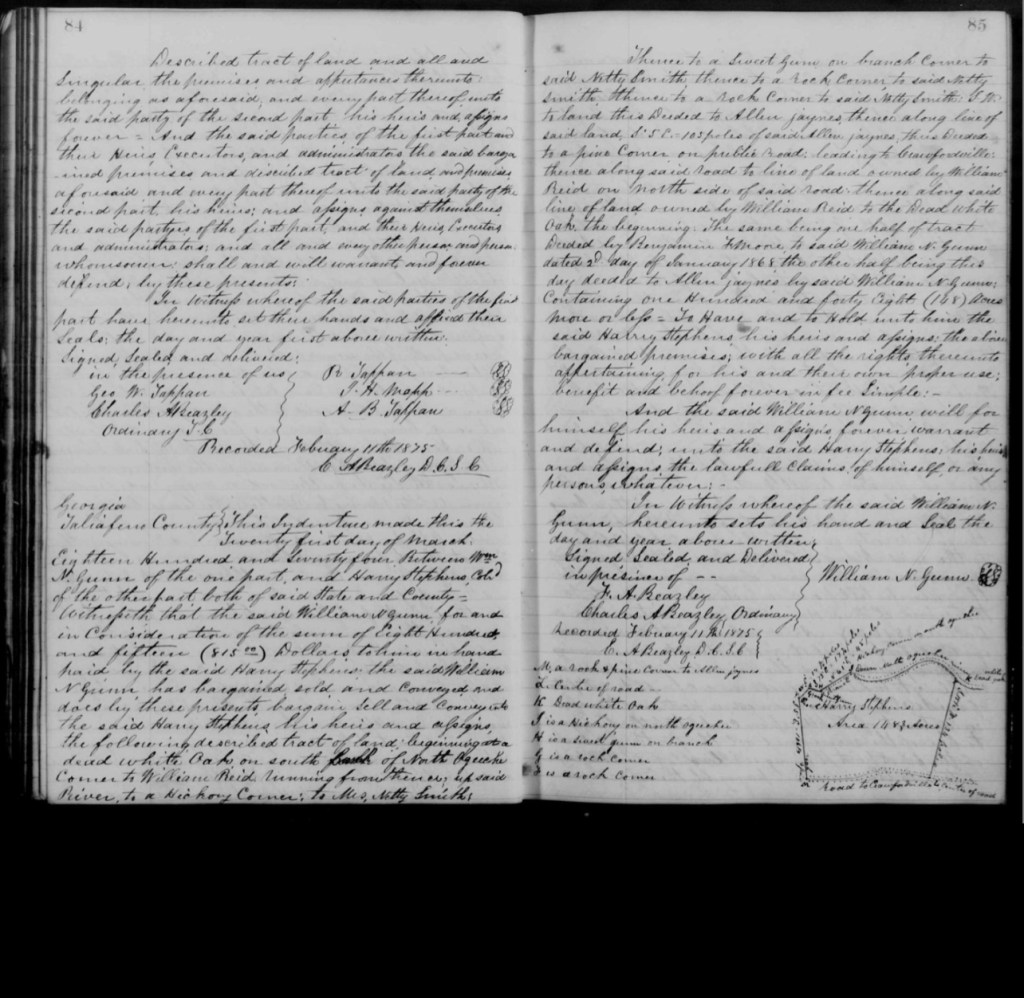 84
Described tract of land and all and
Singular the premises and appurtances thereunto
belonging as aforesaid, and every part thereof unto
the said party of the second part, his heirs and assigns
forever = And the said parties of the first part and
their Heirs, Executors, and administrators the said barga
ined premises and described tract of land, and premises
aforesaid and every part thereof unto the said party of the
second part, his heirs; and assigns against themselves
the said partyes of the first part, and their Heirs, Executors
and administrators; and all and every other person and person
whomsoever: shall and will warrant, and forever
defend, by these presents:
In Witness whereof the said parties of the first
part have hereunto set their hands and affixed their
Seals; the day and year first above written.
Signed, Sealed and delivered;
in the presence of us
R Tappan
Geo W. Tappan
J. H. Mapp
Charles A Beazley
A. B. Tappan
Ordinary T. C
Recorded February 11th 1875
C. A Beazley D. C. S. C
Georgia
Taliaferro County This Indenture made this the
Twenty first day of March
Eighteen Hundred and Seventy four Between Wm
N. Gunn of the one part, and Harry Stephens, Cold
of the other part both of said State and County =
Witnesseth that the said William N Gunn for and
in Consideration of the sum of Eight Hundred
and fifteen (815 00) Dollars to him in hand
paid by the said Harry Stephens the said William
N Gunn has bargained sold and Conveyed and
does by these presents bargain Sell and Convey unto
the said Harry Stephens, his heirs and assigns,
the following described tract of land; beginning at a
dead white Oak on south Bank of North Ogeechee
Corner to William Reid, running from thence, up said
River, to a Hickory Corner; to Mrs. Netty Smith;
85
Thence to a Sweet Gum on branch Corner to
said Netty Smith, thence to a Rock Corner, to said Netty
Smith, thence to a rock Corner to said Netty Smith: S W.
to land this Deeded to Allen jaynes, thence along line of
said land, S. 5 E. - 103 poles of said Allen jaynes, this Deeded
to a pine Corner on public Road; leading to Crawfordville;
thence along said road to line of land owned by William
Reid on North side of said road. thence along said
line of land owned by William Reid to the Dead white
Oak, the beginning. The same being one half of tract
Deeded by Benjamin F Moore to said William N. Gunn
dated 2d day of January 1868 the other half being this
day deeded to Allen jaynes by said William N. Gunn;
Containing one Hundred and forty Eight (148) Acres
more or less = To Have and to Hold unto him the
said Harry Stephens, his heirs and assigns; the above
bargained premises; with all the rights thereunto
appertaining for his and their own proper use;
benefit and behoof forever in fee Simple: -
And the said William N Gunn will for
himself his heirs and assigns, forever warrant
and defend; unto the said Harry Stephens; his heirs
and assigns, the lawfull Claims of himself, or any
persons, whatever: -
In Witness whereof the said William N.
Gunn, hereunto sets his hand and Seal the
day and year above written;
Signed Sealed and Delivered
in presence of - -
William N. Gunn
F. A. Beazley
Charles A Beazley, Ordinary
Recorded February 11th 1875
C. A Beazley D. C. S. C
M. a rock & pine Corner to Allen jaynes
L. Centre of road -
K Dead white Oak
I is a Hickory on north ogeechee
H is a sweet gumm on branch
G is a rock Corner
F is a rock Corner
Harry Stephens
Area 148 Acres
Road to Crawfordville Centre of road